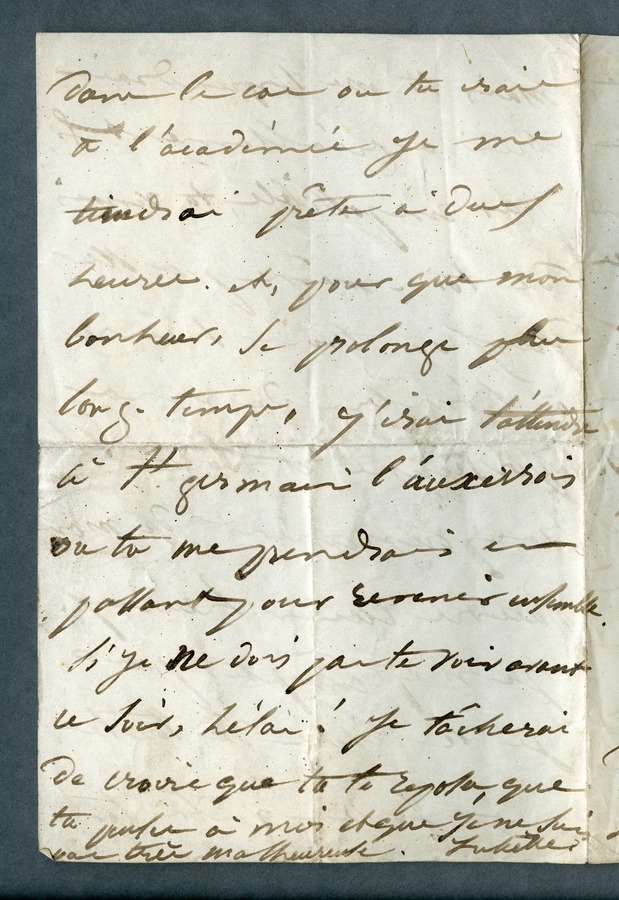 dans le cas ou tu irais
à l'académie je me
tiendrai prête à deux
heures. et, pour que mon
bonheur, se prolonge plus
long-temps, j'irai t'attendre
à St germain l'auxerrois
ou tu me prendrais en
passant pour revenir ensemble.
Si je ne dois pas te voir avant
ce soir, hélas! je tâcherai
de croire que tu te reposes, que
tu penses à moi et que je ne suis
pas très malheureuse. Juliette